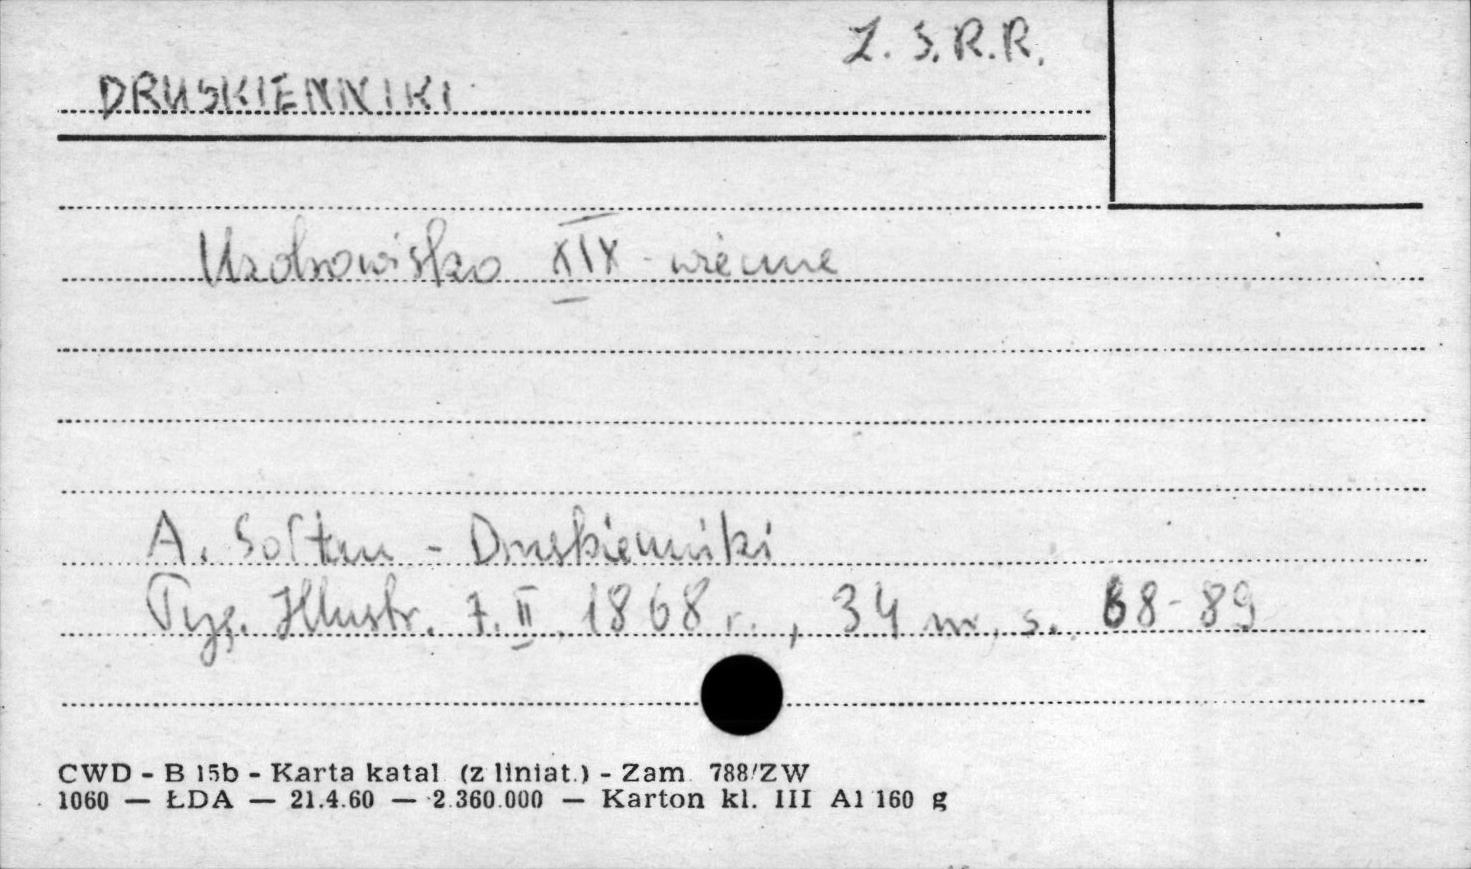 Z. S. R. R.
DRUSKIENNIKI
Uzdrowisko XIX-wieczne
A. Sołtan - Druskienniki
Tyg. Illustr. 7. II. 1868 r., 34 nr, s. 68-89
CWD - B 15b - Karta katal. (z liniat.) - Zam. 788/ZW
1060 — ŁDA — 21.4.60 — 2.360.000 — Karton kl. III A1 160 g